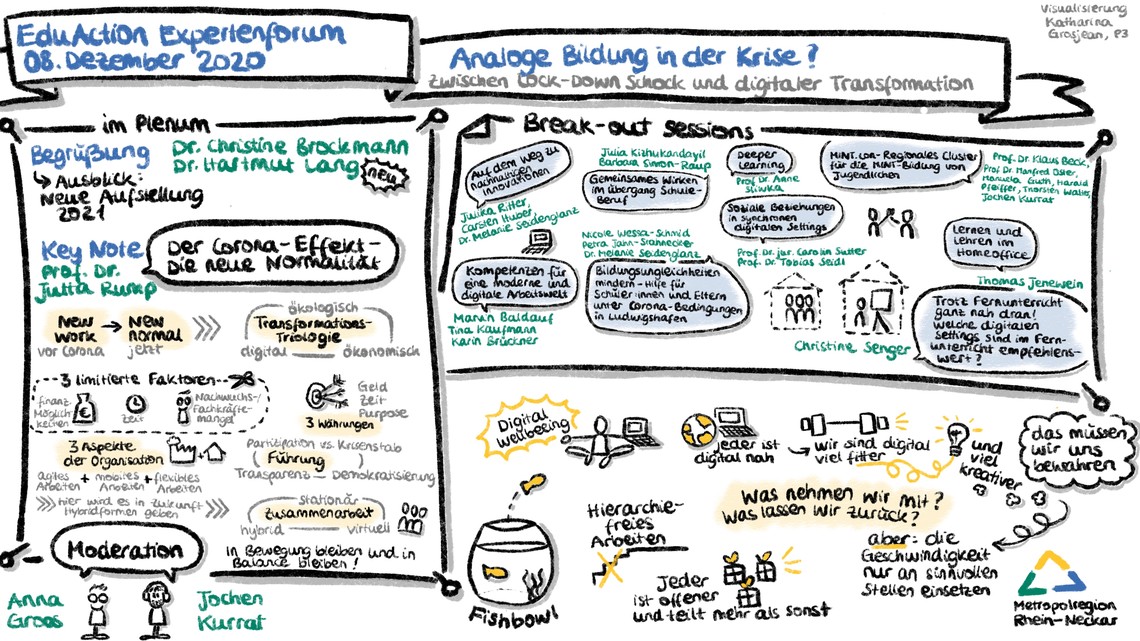 Visualisierung
Katharina
Grosjean, P3
EduAction Expertenforum
08. Dezember 2020
Analoge Bildung in der Krise?
zwischen LOCK-DOWN Schock und digitaler Transformation
im Plenum
Begrüßung
Dr. Christine Brockmann
Dr. Hartmut Lang
neu
Ausblick:
Neue Aufstellung
2021
Key Note
Prof. Dr.
Jutta Rump
Der Corona-Effekt-
Die neue Normalität
New
work
New
normal
vor Corona
jetzt
ökologisch
Transformations-
Triologie
digital
ökonomisch
3 limitierte Faktoren
finanz.
Möglich-
keiten
€
Zeit
Nachwuchs-/
Fachkräfte-
mangel
Geld
Zeit
Purpose
3 Währungen
3 Aspekte
der Organisation
agiles
Arbeiten
+
mobiles
Arbeiten
+
flexibles
Arbeiten
Hier wird es in Zukunft
Hybridformen geben
Partizipation vs. Krisenstab
Führung
Transparenz
Demokratisierung
stationär
Zusammenarbeit
hybrid
virtuell
In Bewegung bleiben und in
Balance bleiben!
Moderation
Anna
Groos
Jochen
Kurrat
Break-out sessions
Auf dem Weg zu
nachhaltigen
Innovationen
Julika Ritter,
Carsten Huber,
Dr. Melanie Seidenglanz
Julia Kizhukandayil
Barbara Simon-Raup
Gemeinsames Wirken
im Übergang Schule-
Beruf
Deeper
Learning
Prof Dr. Anne
Sliwka
MINT.con-Regionales Cluster
für die MINT-Bildung von
Jugendlichen
Prof. Dr. Klaus Beck,
Prof Dr Manfred Oster,
Manuela Guth, Harald
Pfeiffer, Thorsten Walter,
Jochen Kurrat
Kompetenzen für
eine moderne und
digitale Arbeitswelt
Marvin Baldauf
Tina Kaufmann
Karin Brückner
Nicole Wessa-Schmid
Petra Jahn-Stahnecker
Dr. Melanie Seidenglanz
Bildungsungleichheiten
mindern-Hilfe für
Schüler:innen und Eltern
unter Corona-Bedingungen
in Ludwigshafen
Soziale Beziehungen
in synchronen
digitalen Settings
Prof. Dr. jur. Carolin Sutter
Prof. Dr. Tobias Seidl
Lernen und
Lehren im
Homeoffice
Thomas Jenewein
Christine Senger
Trotz Fernunterricht
ganz nah dran!
Welche digitalen
Settings sind im Fern-
unterricht empfehlens-
wert?
Digital
Wellbeeing
jeder ist
digital nah
wir sind digital
viel fitter
und
viel
kreativer
das müssen
wir uns
bewahren
Was nehmen wir mit?
Was lassen wir zurück?
Hierarchie-
freies
Arbeiten
Jeder
ist offener
und teilt mehr als sonst
aber: die
Geschwindigkeit
nur an sinnvollen
Stellen einsetzen
Fishbowl
Metropolregion
Rhein-Neckar